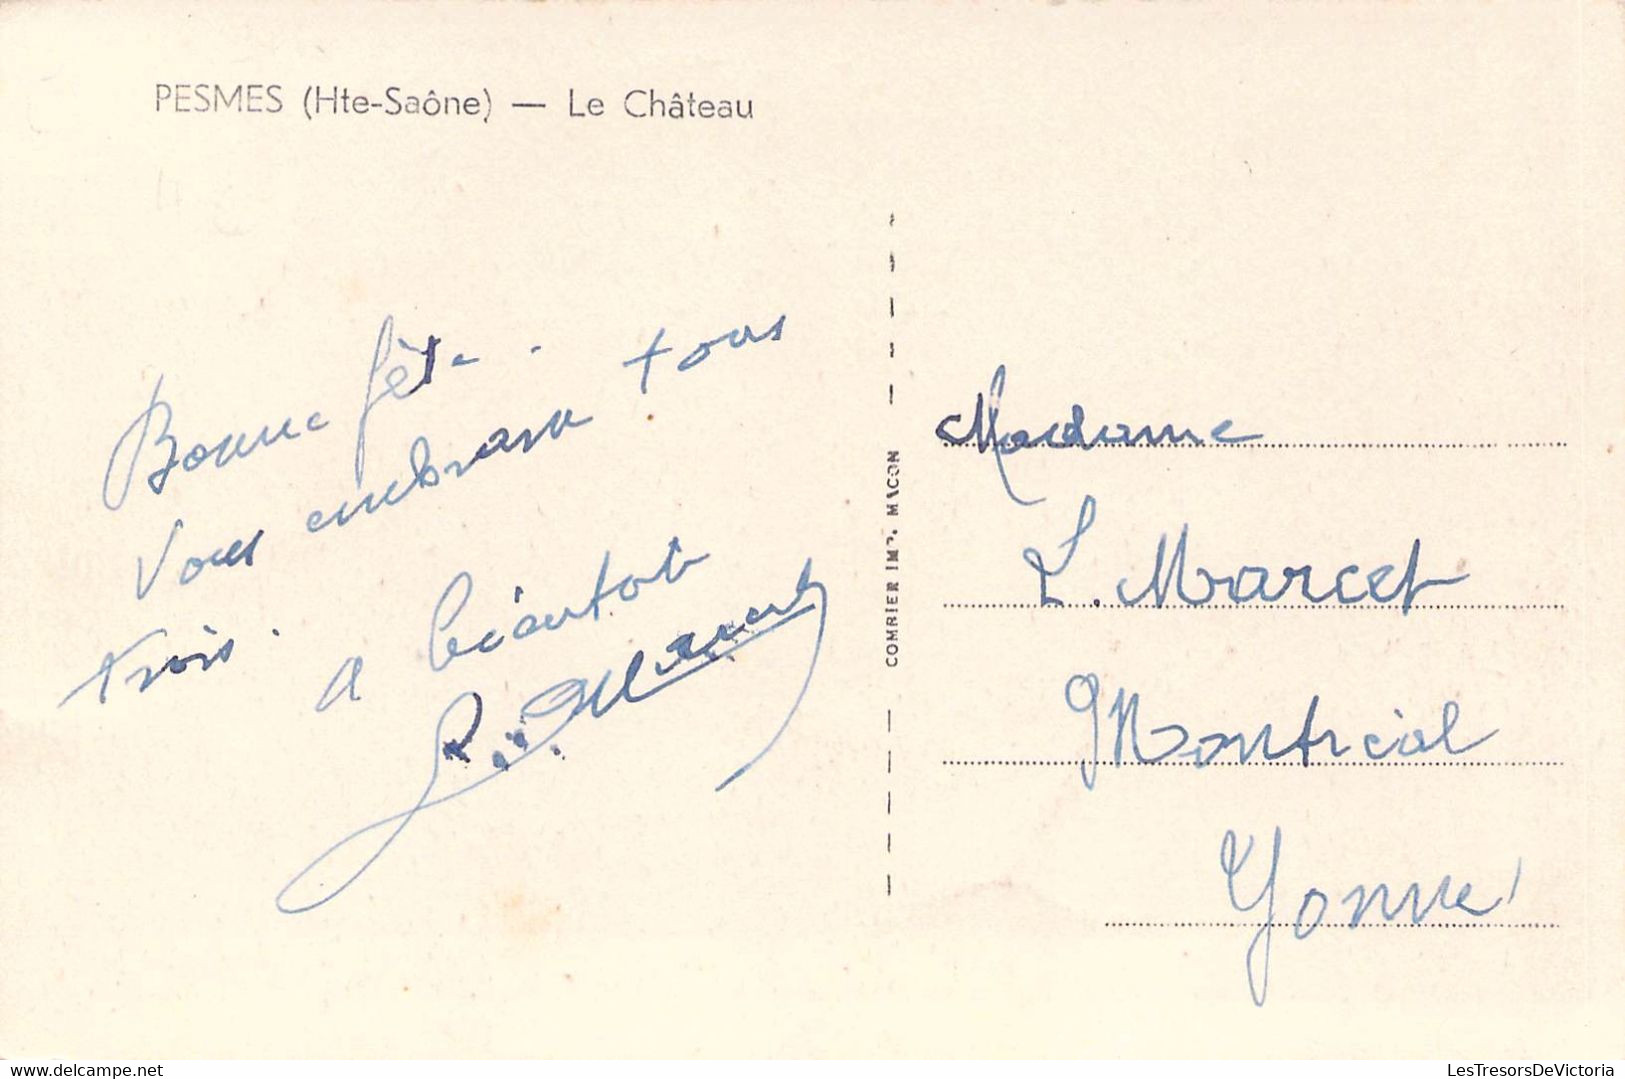 PESMES (Hte-Saône) — Le Château
Bonne fête.
Vous embrasse tous
trois.
a bientot
COMBIER IMP. MACON
Madame
L. Marcet
Montréal
Yonne
www.delcampe.net
LesTresorsDeVictoria